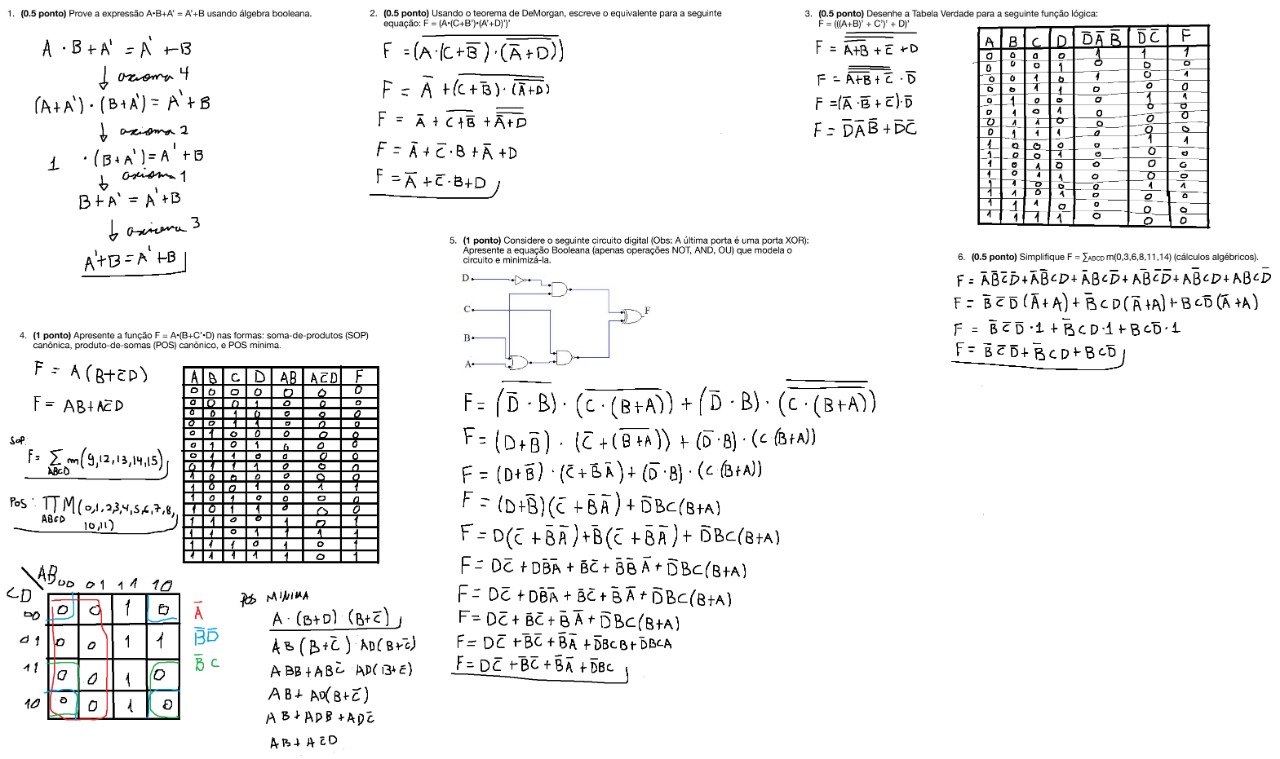 1. (0.5 ponto) Prove a expressão A•B+A' = A'+B usando álgebra booleana.
A · B + A' = A' + B
↓ axioma 4
(A+A') · (B+A') = A' + B
↓ axioma 2
1 · (B+A') = A' + B
↓ axioma 1
B + A' = A' + B
↓ axioma 3
A'+B = A'+B
2. (0.5 ponto) Usando o teorema de DeMorgan, escreve o equivalente para a seguinte
equação: F = (A•(C+B')•(A'+D)')'
F = (A̅ ̅·̅ ̅(̅C̅+̅B̅̅)̅ ̅·̅ ̅(̅A̅̅+̅D̅)̅)
F = A̅ + (C̅+̅B̅̅)̅ · (A̅̅+̅D̅)̅
F = A̅ + C̅+̅B̅̅ + A̅̅+̅D̅̅
F = A̅ + C̅·B + A̅ + D
F = A̅ + C̅·B + D
3. (0.5 ponto) Desenhe a Tabela Verdade para a seguinte função lógica:
F = (((A+B)' + C')' + D)'
F = (A̅̅+̅B̅ + C̅)̅ + D̅
F = A̅+̅B̅ + C̅ · D̅
F = (A̅ · B̅ + C̅) · D̅
F = D̅A̅B̅ + D̅C̅
A B C D D̅A̅B̅ D̅C̅ F
0 0 0 0 1 1 1
0 0 0 1 0 0 0
0 0 1 0 1 0 1
0 0 1 1 0 0 0
0 1 0 0 0 1 1
4. (1 ponto) Apresente a função F = A•(B+C'•D) nas formas: soma-de-produtos (SOP)
canónica, produto-de-somas (POS) canónico, e POS mínima.
F = A(B+C̅D)
F = AB+AC̅D
SOP
F = ∑ m(9,12,13,14,15)
ABCD
POS: ∏ M(0,1,2,3,4,5,6,7,8,
ABCD 10,11)
A B C D AB AC̅D F
0 0 0 0 0 0 0
0 0 0 1 0 0 0
0 0 1 0 0 0 0
0 0 1 1 0 0 0
0 1 0 0 0 0 0
AB 00 01 11 10
CD
00 0 0 1 0
01 0 0 1 1
11 0 0 1 0
10 0 0 1 0
A̅
B̅D̅
B̅C
POS MINIMA
A · (B+D) (B+C̅)
AB(B+C̅) AD(B+C̅)
ABB+ABC̅ AD(B+C̅)
AB+ AD(B+C̅)
AB+ADB+ADC̅
AB+AC̅D
5. (1 ponto) Considere o seguinte circuito digital (Obs: A última porta é uma porta XOR):
Apresente a equação Booleana (apenas operações NOT, AND, OU) que modela o
circuito e minimizá-la.
D
C
B
A
F
F = (D̅̅ ̅·̅ ̅B̅) · (C̅ ̅·̅ ̅(̅B̅+̅A̅)̅) + (D̅ · B) · (C · (B+A))
F = (D+B̅) · (C̅ + (B̅+̅A̅)) + (D̅·B) · (C(B+A))
F = (D+B̅) · (C̅+B̅A̅) + (D̅·B) · (C(B+A))
F = (D+B̅)(C̅ + B̅A̅) + D̅BC(B+A)
F = D(C̅+B̅A̅)+B̅(C̅+B̅A̅) + D̅BC(B+A)
F = DC̅ + DB̅A̅ + B̅C̅ + B̅B̅A̅ + D̅BC(B+A)
F = DC̅ + DB̅A̅ + B̅C̅ + B̅A̅ + D̅BC(B+A)
F = DC̅ + B̅C̅ + B̅A̅ + D̅BC(B+A)
F = DC̅ + B̅C̅ + B̅A̅ + D̅BCB + D̅BCA
F = DC̅ + B̅C̅ + B̅A̅ + D̅BC
6. (0.5 ponto) Simplifique F = ∑ABCD m(0,3,6,8,11,14) (cálculos algébricos).
F = A̅B̅C̅D̅ + A̅B̅CD + A̅BCD̅ + AB̅C̅D̅ + AB̅CD + ABCD̅
F = B̅C̅D̅(A̅+A) + B̅CD(A̅+A) + BCD̅(A̅+A)
F = B̅C̅D̅·1 + B̅CD·1 + BCD̅·1
F = B̅C̅D̅ + B̅CD + BCD̅